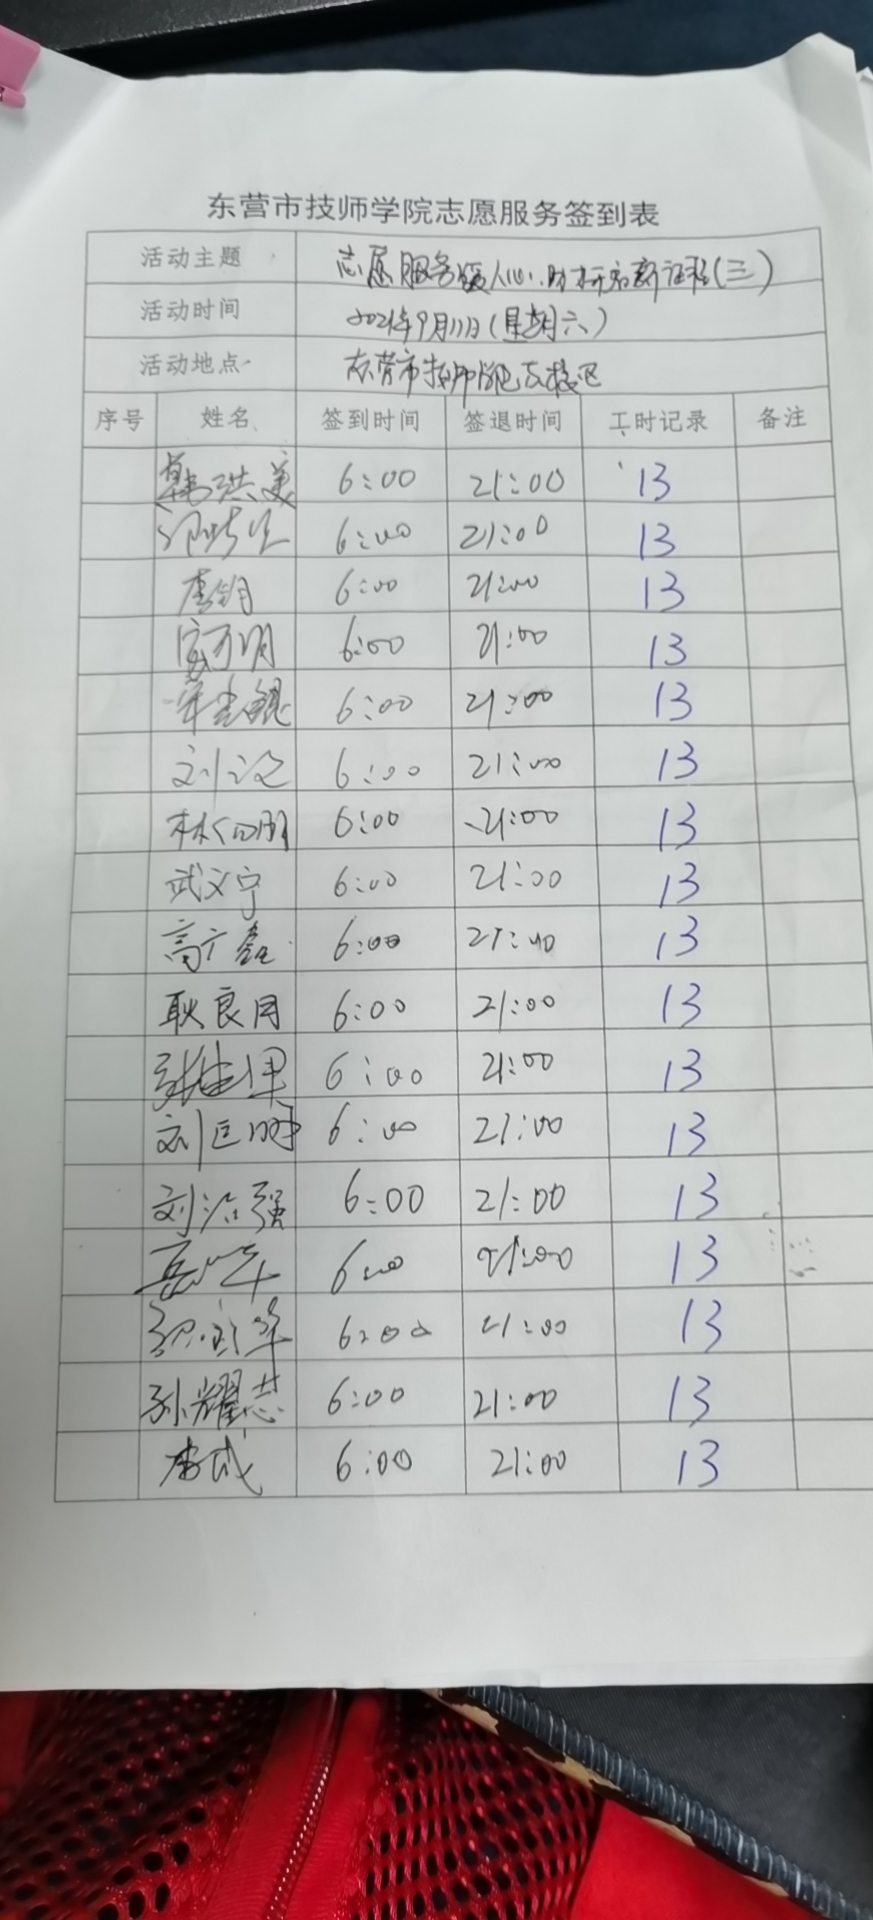 东营市技师学院志愿服务签到表
活动主题 志愿服务暖人心,助标启新征程(三)
活动时间 2021年9月11日(星期六)
活动地点 东营市技师学院东校区
序号 姓名 签到时间 签退时间 工时记录 备注
韩洪美 6:00 21:00 13
6:00 21:00 13
李钥 6:00 21:00 13
6:00 21:00 13
6:00 21:00 13
刘 6:00 21:00 13
林 6:00 21:00 13
武文宁 6:00 21:00 13
高广鑫 6:00 21:00 13
耿良同 6:00 21:00 13
张 6:00 21:00 13
刘巨明 6:00 21:00 13
刘治强 6:00 21:00 13
岳 6:00 21:00 13
6:00 21:00 13
孙耀志 6:00 21:00 13
李斌 6:00 21:00 13